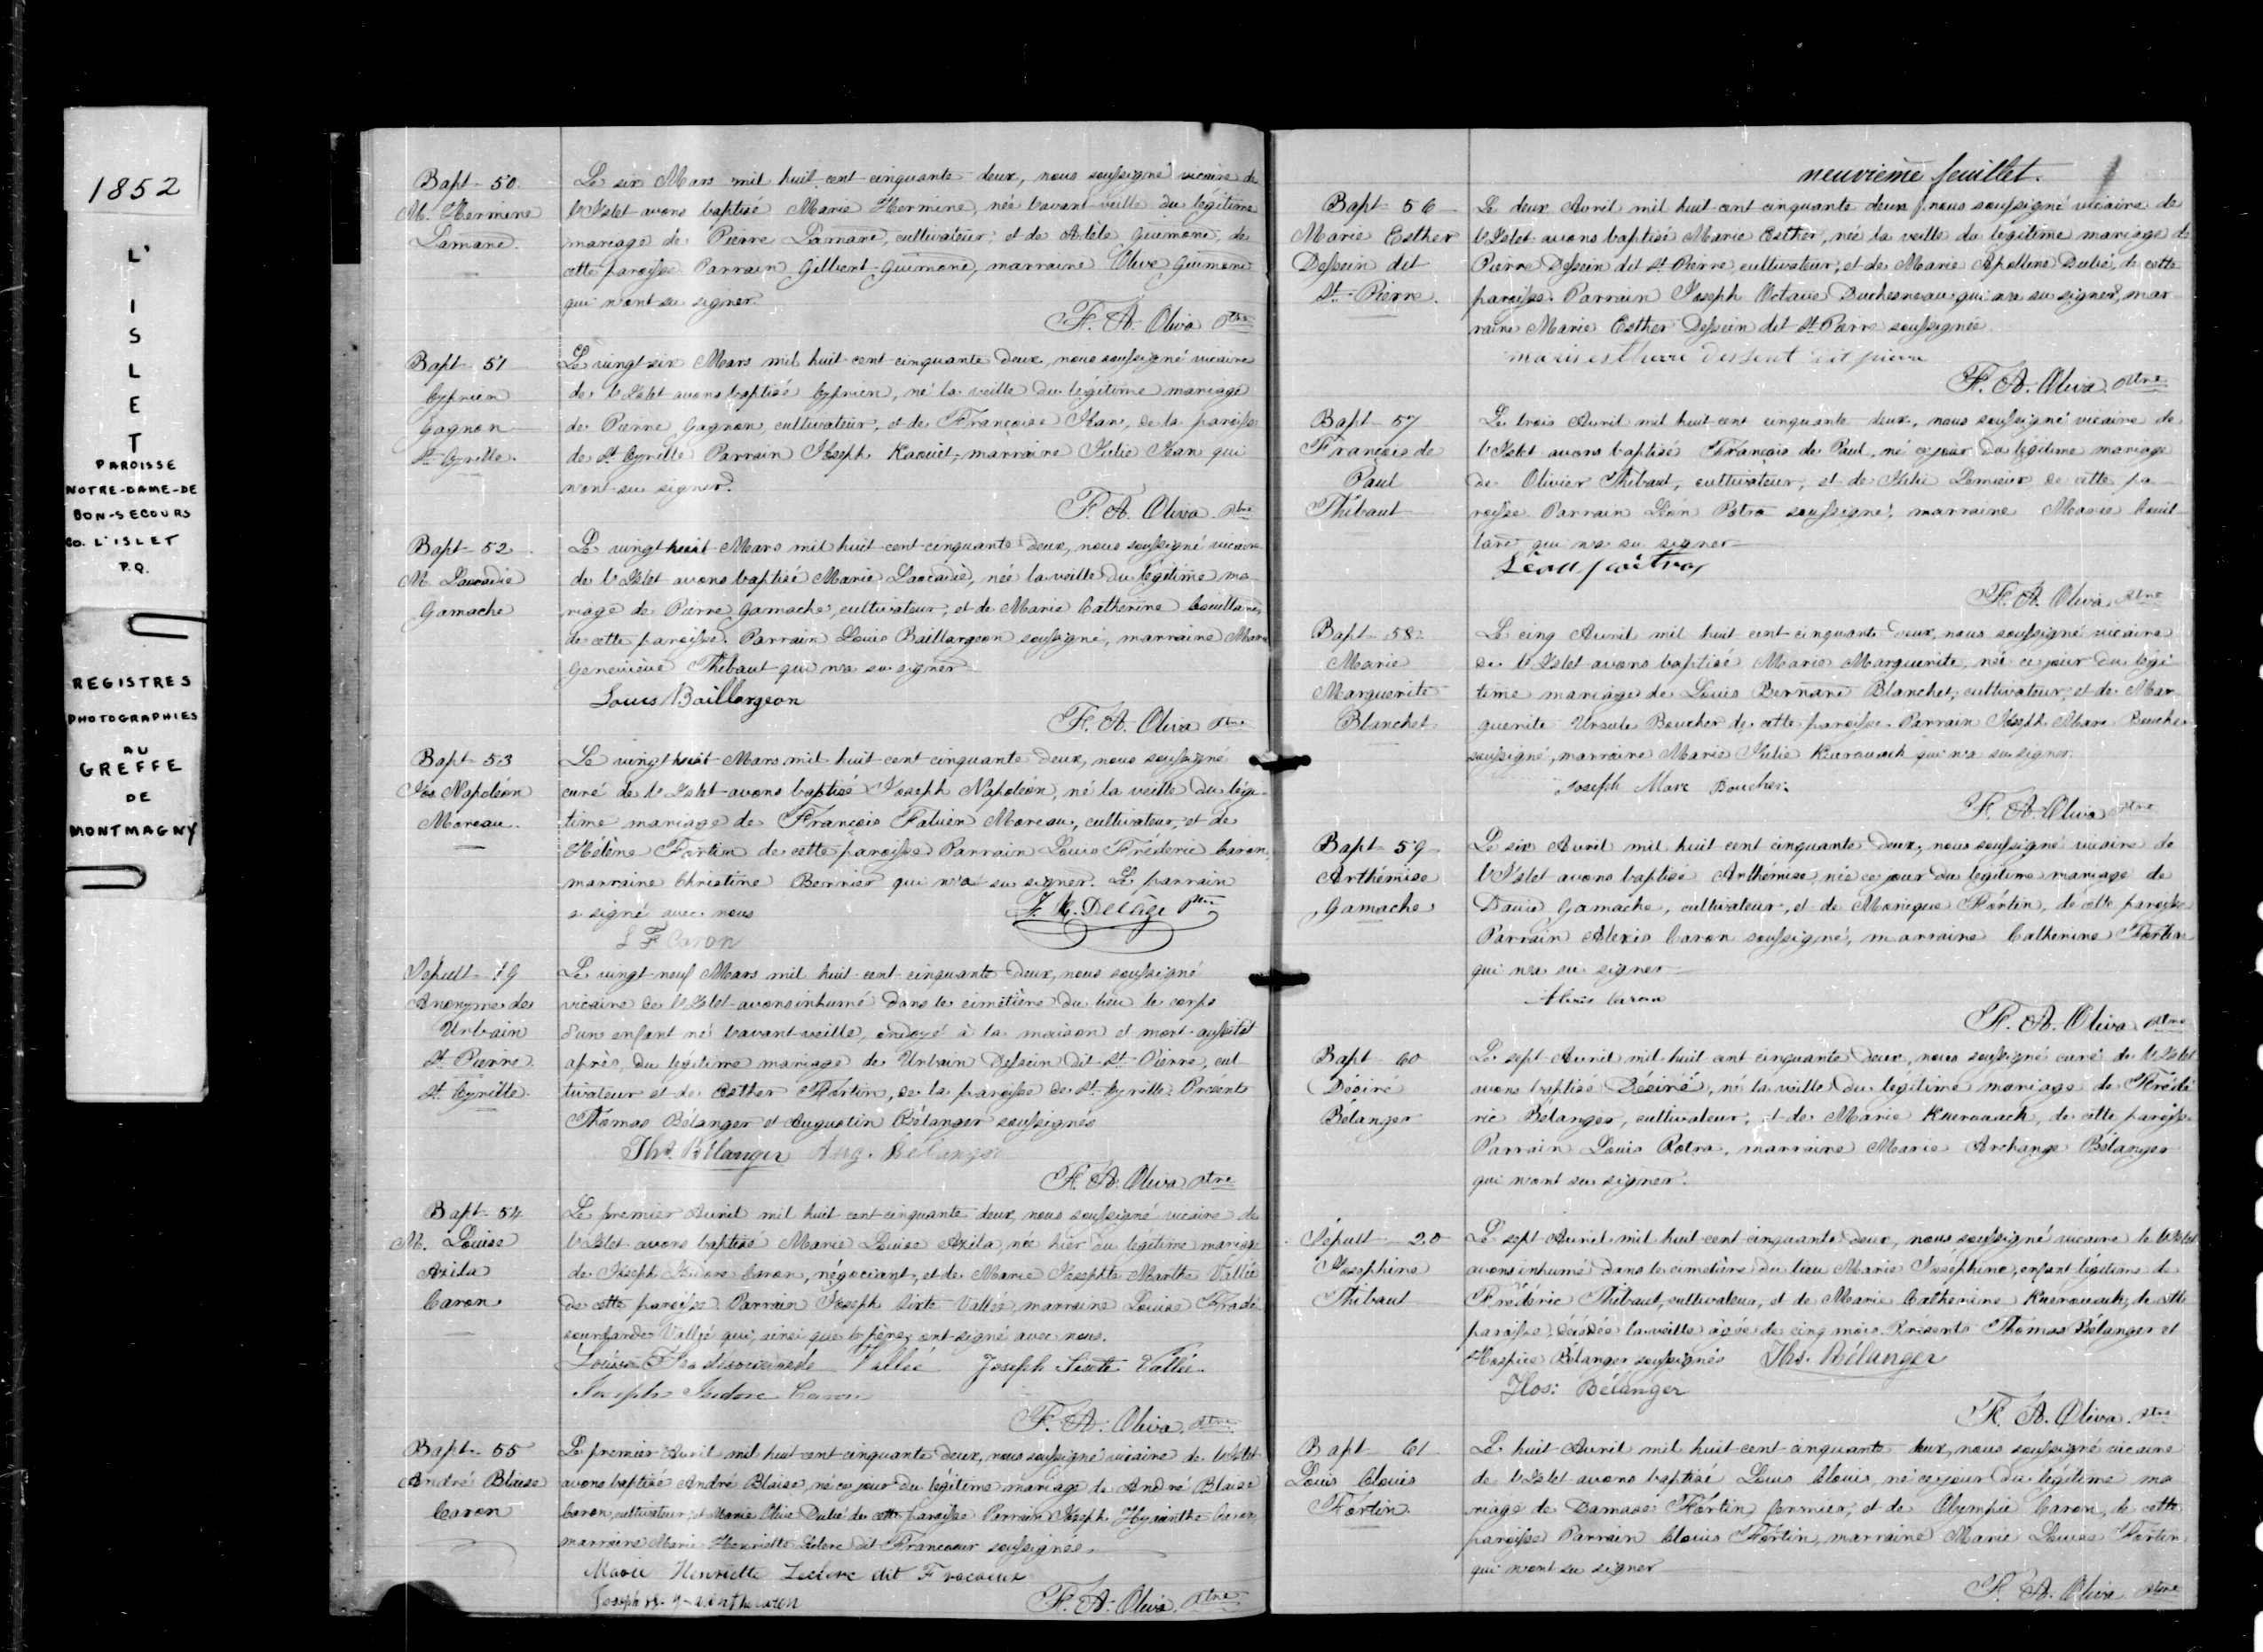 1852
L'
I
S
L
E
T
PAROISSE
NOTRE-DAME-DE
BON-SECOURS
CO. L'ISLET
P.Q.
REGISTRES
PHOTOGRAPHIES
AU
GREFFE
DE
MONTMAGNY
Bapt - 50
M. Hermine
Lamarre
Le six Mars mil huit cent cinquante deux, nous soussigné vicaire de
l'Islet avons baptisé Marie Hermine, née l'avant-veille du légitime
mariage de Pierre Lamarre, cultivateur, et de Adèle Guimond, de
cette paroisse. Parrain Gilbert Guimond, marraine Olive Guimond
qui n'ont su signer
F. A. Oliva ptre
Bapt - 51
Cyprien
Gagnon
St Cyrille
Le vingt-six Mars mil huit cent cinquante deux, nous soussigné vicaire
de l'Islet avons baptisé Cyprien, né la veille du légitime mariage
de Pierre Gagnon, cultivateur, et de Françoise Jean, de la paroisse
de St Cyrille Parrain Joseph marraine Julie Jean qui
n'ont su signer.
F. A. Oliva ptre
Bapt - 52
M. Laocadie
Gamache
Le vingt huit Mars mil huit cent cinquante deux, nous soussigné vicaire
de l'Islet avons baptisé Marie Laocadie, née la veille du légitime ma-
riage de Pierre Gamache, cultivateur, et de Marie Catherine Couillard,
de cette paroisse. Parrain Louis Baillargeon soussigné, marraine Marie
Geneviève Thibaut qui n'a su signer
Louis Baillargeon
F. A. Oliva ptre
Bapt - 53
Jos. Napoléon
Moreau
Le vingt huit Mars mil huit cent cinquante deux, nous soussigné
curé de l'Islet avons baptisé Joseph Napoléon, né la veille du légi-
time mariage de François Fabien Moreau, cultivateur, et de
Hélène Fortin de cette paroisse Parrain Louis Fréderic Caron,
marraine Christine Bernier qui n'a su signer. Le parrain
a signé avec nous
F. X. Delâge ptre
L F Caron
Sépult - 19
Anonyme de
Urbain
St Pierre
St Cyrille
Le vingt-neuf Mars mil huit cent cinquante deux, nous soussigné
vicaire de l'Islet avons inhumé dans le cimetière du lieu le corps
d'un enfant né l'avant-veille, ondoyé à la maison et mort aussitôt
après, du légitime mariage de Urbain Dessein dit St Pierre, cul
tivateur et de Esther Fortin, de la paroisse de St Cyrille. Présents
Thomas Bélanger et Augustin Bélanger soussignés
Ths. Bélanger Aug. Bélanger
F. A. Oliva ptre
Bapt - 54
M. Louise
Axila
Caron
Le premier Avril mil huit cent cinquante deux, nous soussigné vicaire de
l'Islet avons baptisé Marie Louise Axila, née hier du légitime mariage
de Joseph Isidore Caron, négociant, et de Marie Josephte Marthe Vallée
de cette paroisse. Parrain Joseph Sixte Vallée, marraine Louise
Vallée qui, ainsi que le père, ont signé avec nous.
Louise Vallée Joseph Sixte Vallée
Joseph Isidore Caron
F. A. Oliva ptre
Bapt - 55
André Blaise
Caron
Le premier Avril mil huit cent cinquante deux, nous soussigné vicaire de l'Islet
avons baptisé André Blaise, né ce jour du légitime mariage de André Blaise
Caron, cultivateur, et Marie Olive Dubé de cette paroisse Parrain Joseph Hyacinthe Caron,
marraine Marie Henriette Leclerc dit Francoeur soussignés.
Marie Henriette Leclerc dit Fracoeur
F. A. Oliva ptre
neuvième feuillet.
Bapt - 56
Marie Esther
Dessein dit
St - Pierre
Le deux Avril mil huit cent cinquante deux, nous soussigné vicaire de
l'Islet avons baptisé Marie Esther, née la veille du légitime mariage de
Pierre Dessein dit St Pierre, cultivateur, et de Marie Apolline Dubé, de cette
paroisse. Parrain Joseph Octave Duchesneau qui n'a su signer, mar
raine Marie Esther Dessein dit St Pierre soussignée
F. A. Oliva ptre
Bapt - 57
François de
Paul
Thibaut
Le trois Avril mil huit cent cinquante deux, nous soussigné vicaire de
l'Islet avons baptisé François de Paul, né ce jour du légitime mariage
de Olivier Thibaut, cultivateur, et de Julie Lemieux de cette pa-
roisse Parrain Léon Potra soussigné, marraine Marie Couil
lard qui n'a su signer
F. A. Oliva ptre
Bapt - 58
Marie
Marguerite
Blanchet
Le cinq Avril mil huit cent cinquante deux, nous soussigné vicaire
de l'Islet avons baptisé Marie Marguerite, née ce jour du légi
time mariage de Louis Bernard Blanchet, cultivateur, et de Mar
guerite Ursule Boucher de cette paroisse. Parrain Joseph Marc Boucher
soussigné, marraine Marie Julie Kuerouack qui n'a su signer.
Joseph Marc Boucher
F. A. Oliva ptre
Bapt - 59
Arthémise
Gamache
Le six Avril mil huit cent cinquante deux, nous soussigné vicaire de
l'Islet avons baptisé Arthémise, née ce jour du légitime mariage de
David Gamache, cultivateur, et de Monique Fortin, de cette paroisse
Parrain Alexis Caron soussigné, marraine Catherine Fortin
qui n'a su signer
Alexis Caron
F. A. Oliva ptre
Bapt - 60
Désiré
Bélanger
Le sept Avril mil huit cent cinquante deux, nous soussigné curé de l'Islet
avons baptisé Désiré, né la veille du légitime mariage de Frédé
ric Bélanger, cultivateur, et de Marie Kuerouack, de cette paroisse
Parrain Louis Potra, marraine Marie Archange Bélanger
qui n'ont su signer.
Sépult - 20
Josephine
Thibaut
Le sept Avril mil huit cent cinquante deux, nous soussigné vicaire de l'Islet
avons inhumé dans le cimetière du lieu Marie Joséphine, enfant légitime de
Fréderic Thibaut, cultivateur, et de Marie Catherine Kuerouack, de cette
paroisse, décédée la veille âgée de cinq mois. Présents Thomas Bélanger et
Hospice Bélanger soussignés Ths. Bélanger
Hos: Bélanger
F. A. Oliva ptre
Bapt - 61
Louis Clovis
Fortin
Le huit Avril mil huit cent cinquante deux, nous soussigné vicaire
de l'Islet avons baptisé Louis Clovis, né ce jour du légitime ma
riage de Damase Fortin, fermier, et de Olympie Caron, de cette
paroisse Parrain Clovis Fortin, marraine Marie Louise Fortin
qui n'ont su signer
F. A. Oliva ptre